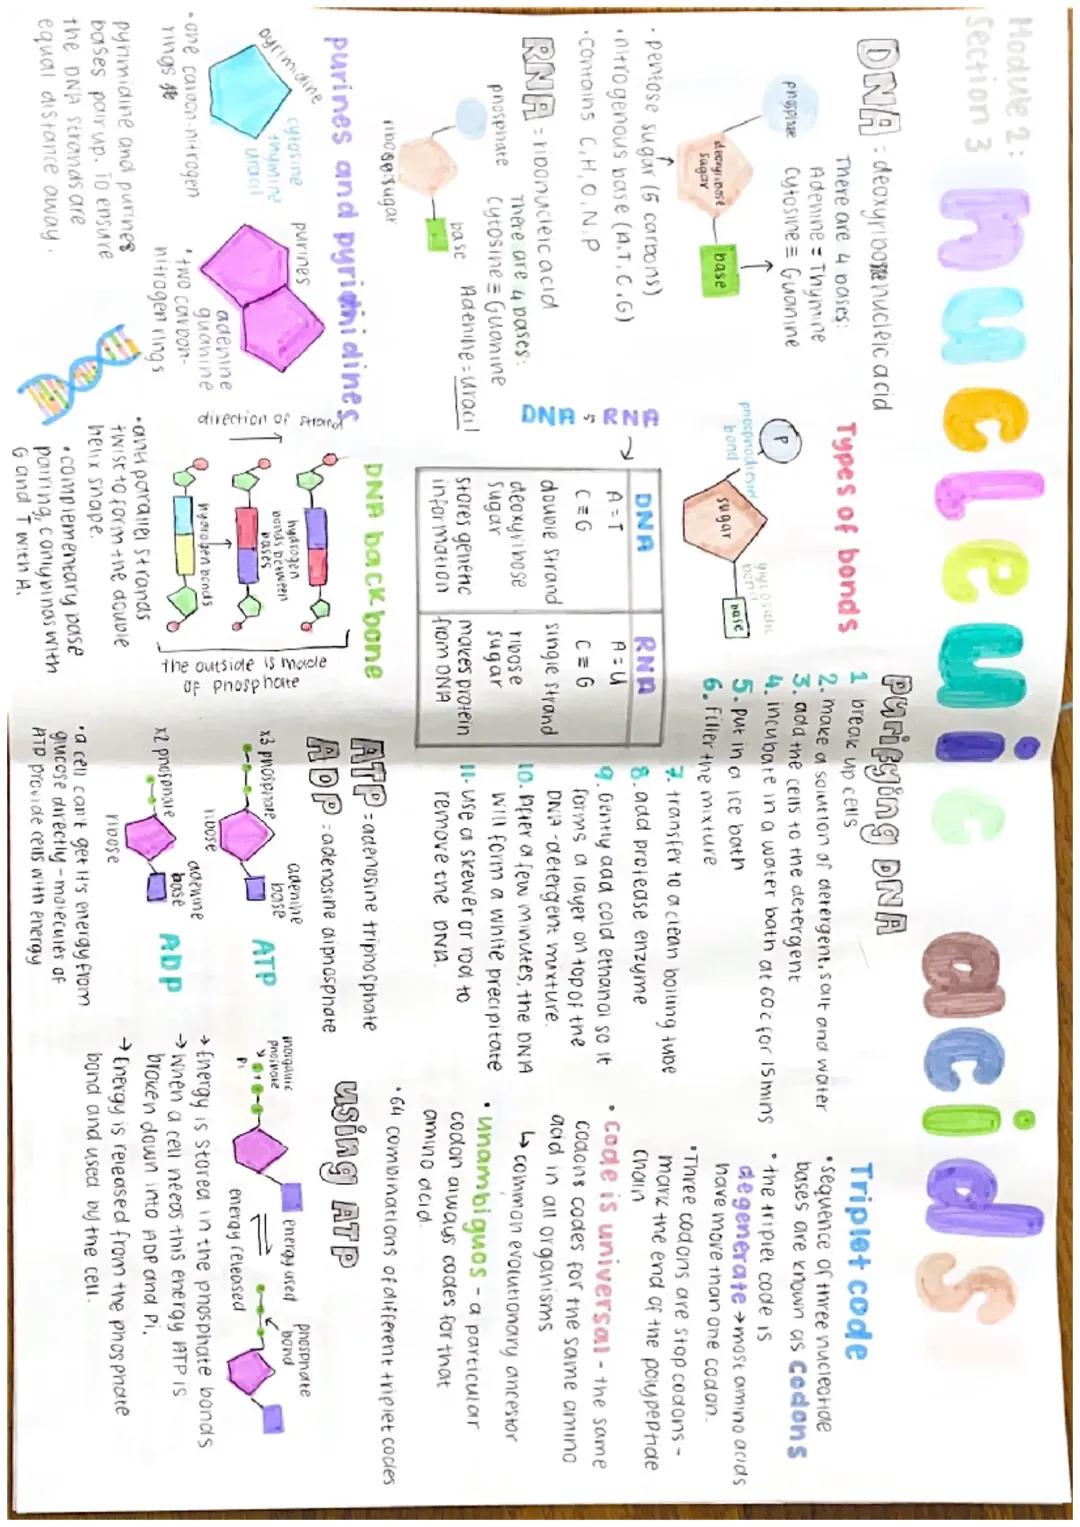 Module 2:
Section 3
nucleuic acids
DNA : deoxyribose nucleic acid
There are 4 bases:
Adenine = Thymine
Cytosine ≡ Guanine
phosphate
deoxyribose
sugar
base
• pentose sugar (5 carbons)
• nitrogenous base (A,T,C,G)
• contains C, H, O, N, P
RNA = ribonucleic acid
There are 4 bases:
Cytosine ≡ Guanine
Adenine = Uracil
phosphate
base
ribose sugar
purines and pyrimidines
pyrimidine
cytosine
thymine
uracil
purines
adenine
guanine
• one carbon-nitrogen
rings
• two carbon-
nitrogen rings
pyrimidine and purines
bases pair up. To ensure
the DNA strands are
equal distance away.
Types of bonds
P
phosphodiester
bond
sugar
glycosidic
bond
base
DNA vs RNA
DNA RNA
A = T A = U
C ≡ G C ≡ G
double strand single strand
deoxyribose ribose
sugar sugar
stores genetic makes protein
information from DNA
DNA backbone
direction of strand
hydrogen
bonds between
bases
hydrogen bonds
the outside is made
of phosphate
• antiparallel strands
twist to form the double
helix shape.
• complementary base
pairing, C only binds with
G and T with A.
Purifying DNA
1 break up cells
2. make a solution of detergent, salt and water
3. add the cells to the detergent
4. incubate in a water bath at 60°c for 15mins
5. put in a ice bath
6. Filter the mixture
7. transfer to a clean boiling tube
8. add protease enzyme
9. Gently add cold ethanol so it
forms a layer on top of the
DNA-detergent mixture.
10. After a few minutes, the DNA
will form a white precipitate
11. use a skewer or rod to
remove the DNA.
ATP = adenosine triphosphate
ADP : adenosine diphosphate
x3 phosphate
ribose
adenine
base
ATP
x2 phosphate
ribose
adenine
base
ADP
• a cell can't get it's energy from
glucose directly - molecules of
ATP provide cells with energy
Triplet code
• sequence of three nucleotide
bases are known as codons
• the triplet code is
degenerate → most amino acids
have more than one codon.
• Three codons are stop codons -
mark the end of the polypeptide
chain
• Code is universal - the same
codons codes for the same amino
acid in all organisms
↳ common evolutionary ancestor
• unambiguos - a particular
codon always codes for that
amino acid.
• 64 combinations of different triplet codes
using ATP
inorganic
phosphate
Pi
energy used
energy released
phosphate
bond
→ Energy is stored in the phosphate bonds
→ When a cell needs this energy ATP is
broken down into ADP and Pi.
→ Energy is released from the phosphate
bond and used by the cell.